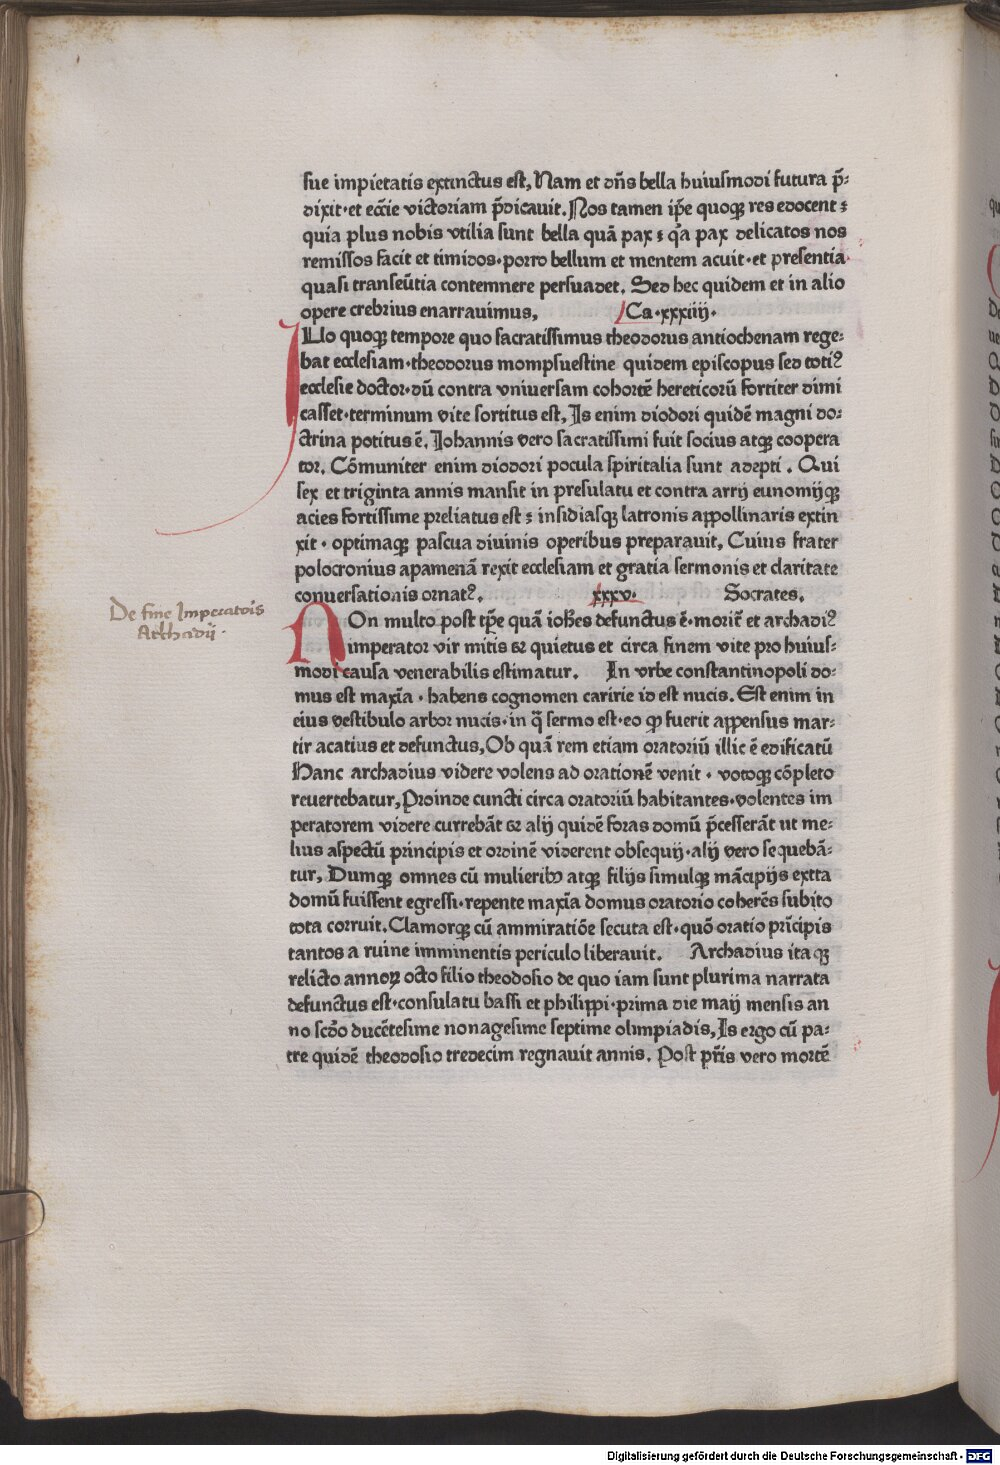 sue impietatis extinctus est, Nam et dn̄s bella huiusmodi futura p̄⸗
dixit·et ecc̄ie victoriam p̄dicauit. Nos tamen ip̄e quoqꝫ res edocent ⁊
quia plus nobis vtilia sunt bella quā pax ⁊ qa̅ pax delicatos nos
remissos facit et timidos·porro bellum et mentem acuit·et presentia
quasi transeūtia contemnere persuadet. Sed hec quidem et in alio
opere crebrius enarrauimus, Ca·xxxiiij·
ILlo quoqꝫ tempore quo sacratissimus theodorus antiochenam rege⸗
bat ecclesiam·theodorus mompsuestine quidem episcopus sed totiꝰ
ecclesie doctor·dū contra vniuersam cohortē hereticorū fortiter dimi
casset·terminum vite sortitus est, Is enim diodori quidē magni do⸗
ctrina potitus ē. Iohannis vero sacratissimi fuit socius atqꝫ coopera
tor. Cōmuniter enim diodori pocula spiritalia sunt adepti. Qui
sex et triginta annis mansit in presulatu et contra arrij eunomijqꝫ
acies fortissime preliatus est ⁊ insidiasqꝫ latronis appollinaris extin
xit·optimaqꝫ pascua diuinis operibus preparauit, Cuius frater
polocronius apamenā rexit ecclesiam et gratia sermonis et claritate
conuersationis ornatꝰ. xxxv· Socrates.
De fine Imperatoris
Archadij·
NOn multo post tp̄e quā ioh̄es defunctus ē·morit̄ et archadiꝰ
imperator vir mitis et quietus et circa finem vite pro huius⸗
modi causa venerabilis estimatur. In vrbe constantinopoli do⸗
mus est maxīa·habens cognomen caririe id est nucis. Est enim in
eius vestibulo arbor nucis·in q̄ sermo est·eo ꝙ fuerit appensus mar⸗
tir acatius et defunctus, Ob quā rem etiam oratoriū illic ē edificatū
Hanc archadius videre volens ad orationē venit·votoqꝫ cōpleto
reuertebatur, Proinde cuncti circa oratoriū habitantes·volentes im
peratorem videre currebāt et alij quidē foras domū p̄cesserāt ut me⸗
lius aspectū principis et ordinē viderent obsequij·alij vero sequebā⸗
tur, Dumqꝫ omnes cū mulieribꝰ atqꝫ filijs simulqꝫ mācipijs extta
domū fuissent egressi·repente maxīa domus oratorio coherēs subito
tota corruit. Clamorqꝫ cū ammiratiōe secuta est·quō oratio prīcipis
tantos a ruine imminentis periculo liberauit. Archadius itaqꝫ
relicto annoꝝ octo filio theodosio de quo iam sunt plurima narrata
defunctus est·consulatu bassi et philippi·prima die maij mensis an
no scd̄o ducētesime nonagesime septime olimpiadis, Is ergo cū pa⸗
tre quidē theodosio tredecim regnauit annis. Post pr̄is vero mortē
Digitalisierung gefördert durch die Deutsche Forschungsgemeinschaft - DFG